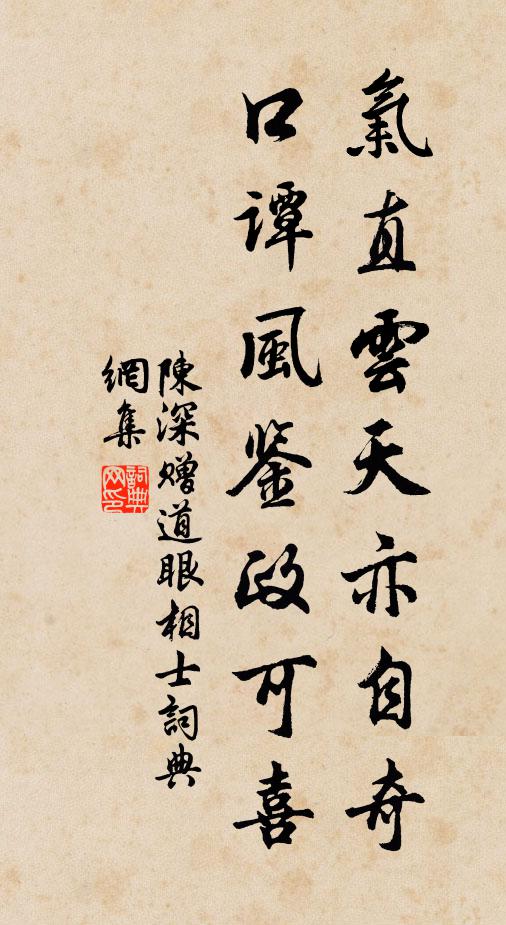 氣直雲天亦自奇
口譚風鉴政可喜
陳深贈道眼相士詞典
網集
詞典
网印